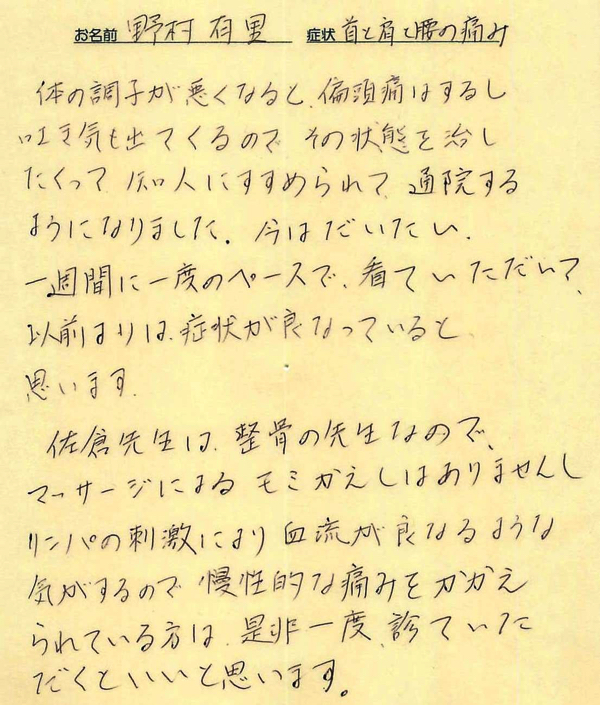 お名前 野村 有里 症状 首と肩と腰の痛み
体の調子が悪くなると、偏頭痛はするし
吐き気も出てくるので その状態を治し
たくって 知人にすすめられて、通院する
ようになりました。今はだいたい、
一週間に一度のペースで、看ていただいて、
以前よりは、症状が良なっていると
思います。
佐倉先生は、整骨の先生なので、
マッサージによる モミかえしはありませんし
リンパの刺激により 血流が良なるような
気がするので 慢性的な痛みをかかえ
られている方は、是非一度、診ていた
だくといいと思います。